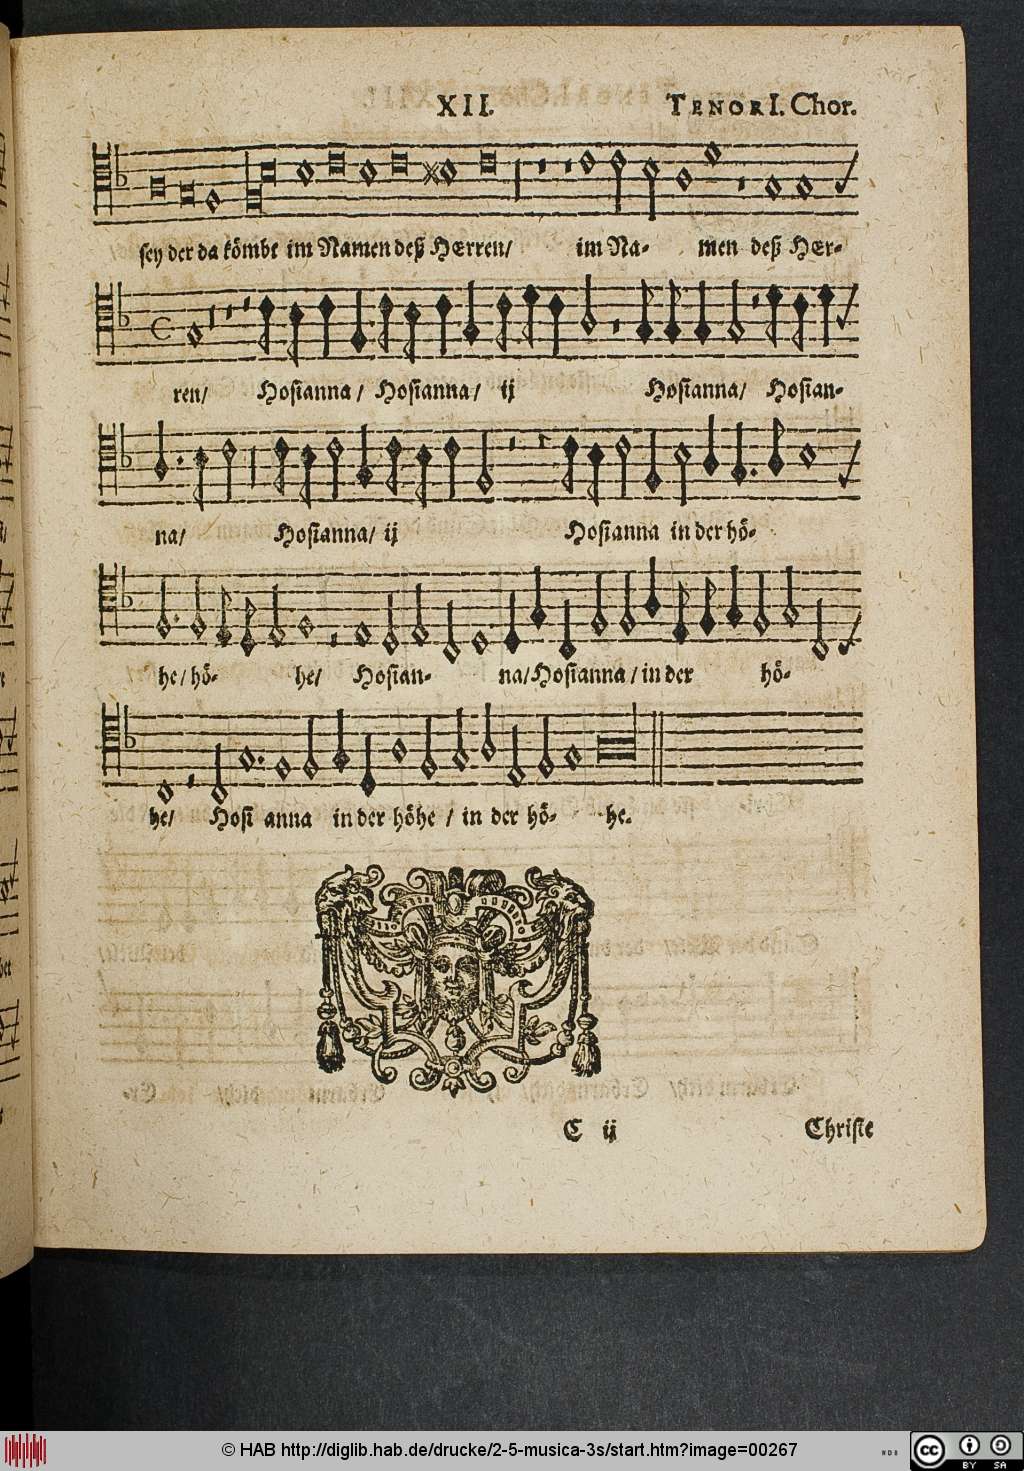 XII. TENOR I. Chor.
sey der da kömbt im Namen deß HErren/ im Na- men deß HEr-
ren/ Hosianna / Hosianna / ij Hosianna/ Hosian-
na/ Hosianna/ ij Hosianna in der hö-
he/ hö- he/ Hosian- na/ Hosianna / in der hö-
he/ Hosi anna in der höhe / in der hö- he.
C ij Christe
© HAB http://diglib.hab.de/drucke/2-5-musica-3s/start.htm?image=00267
WDB
cc BY SA